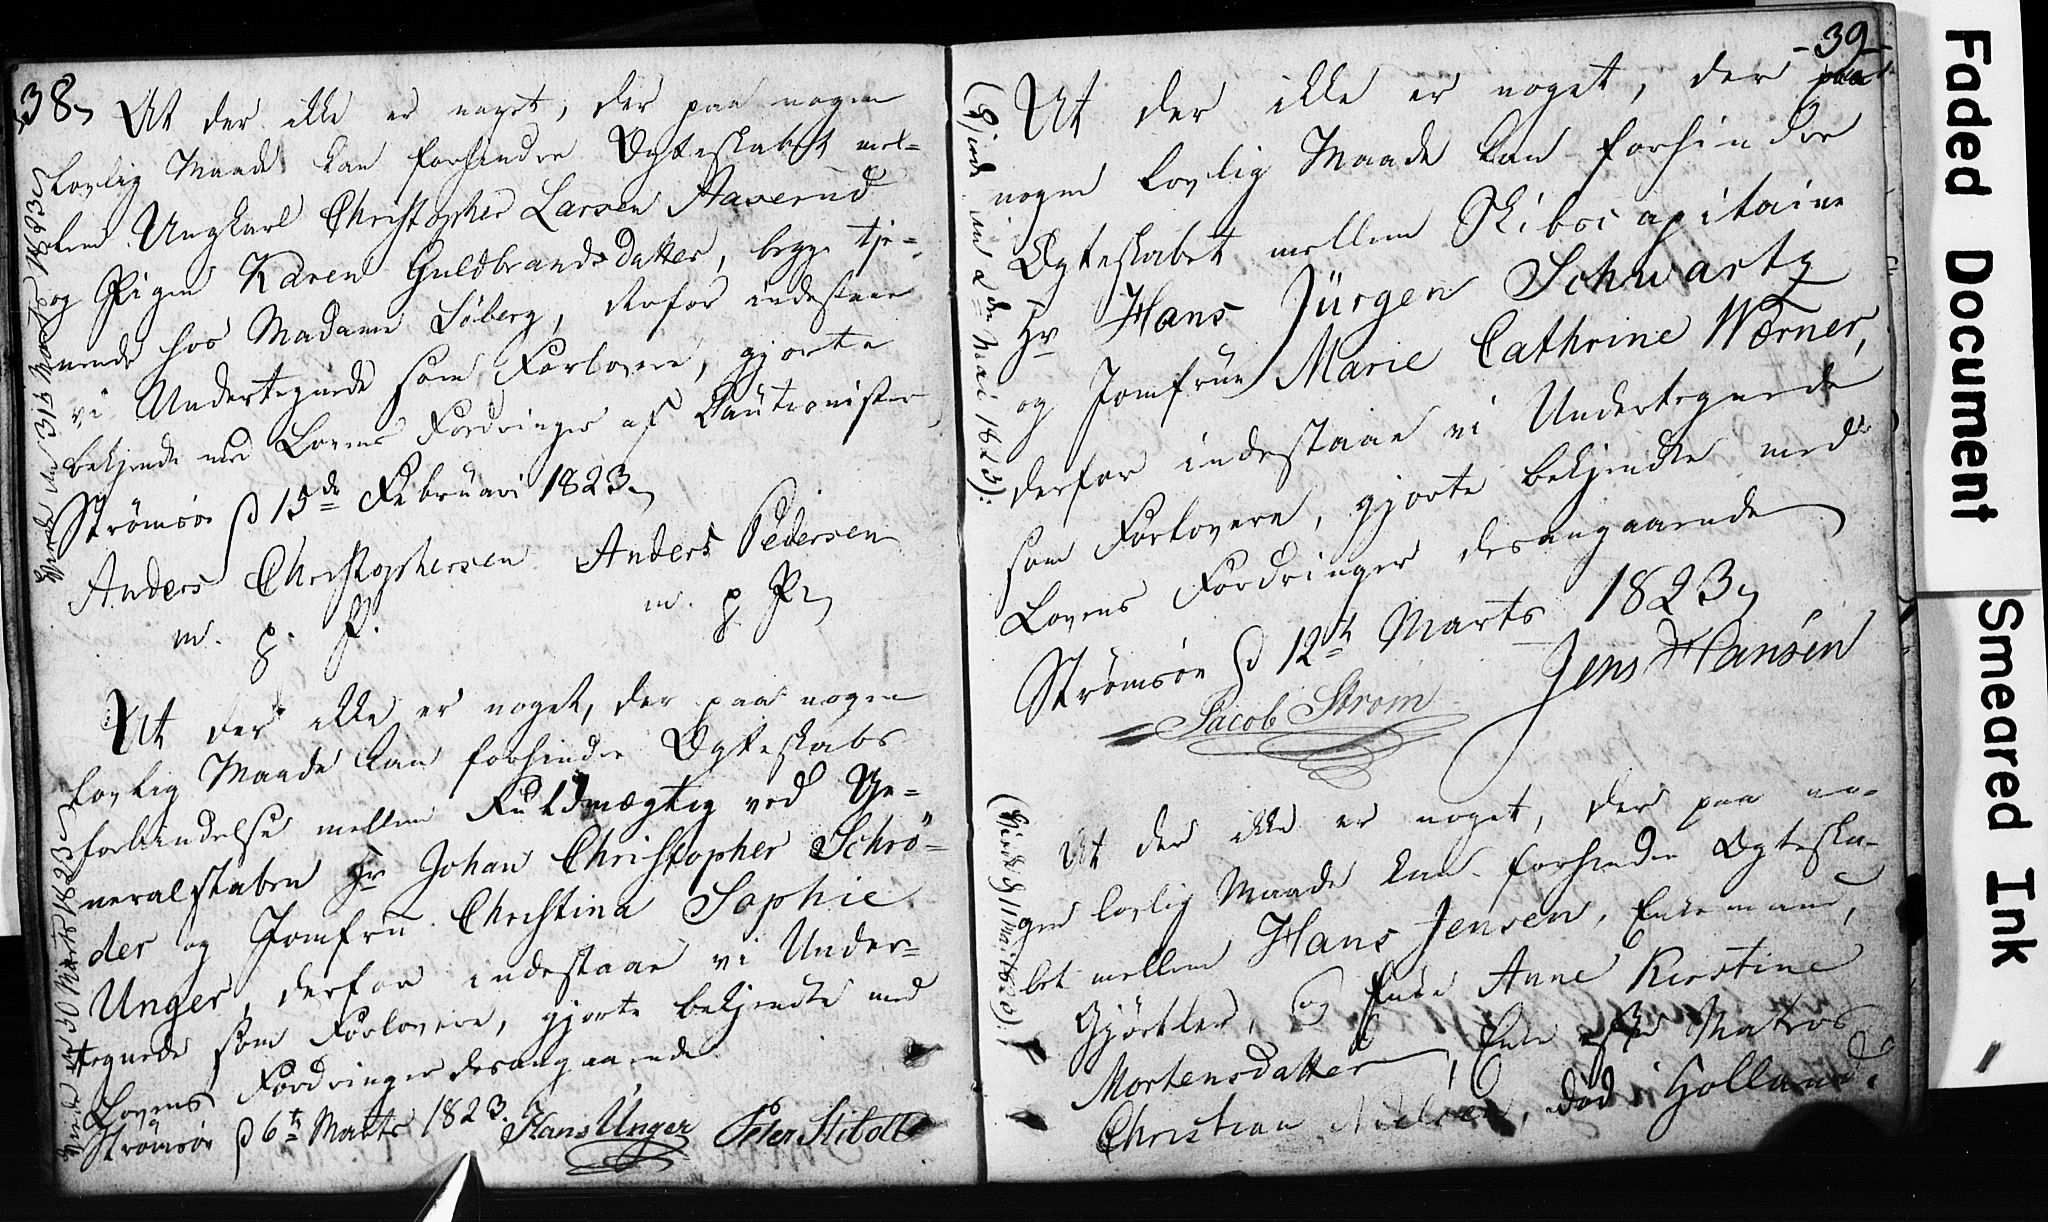 38,
At der ikke er noget, der paa nogen
lovlig Maade kan forhindre Ægteskabet mel-
lem Ungkarl Christopher Larsen Aaserud
og Pigen Karen Guldbrandsdatter, begge tje-
nende hos Madame Söberg, derfor indestaae
vi Undertegnede som Forlovere, gjorte
bekjendte med Lovens Fordringer af Cautionister
Strömsöe d 15de Februari 1823,
Anders Christophersen Anders Pedersen
m. p. P. m. p. P.
Viede den 31 Marts 1823,
At der ikke er noget, der paa nogen
lovlig Maade kan forhindre Ægteskabs
forbindelse mellem Fuldmægtig ved Ge-
neralstaben Hr Johan Christopher Schrö-
der og Jomfru Christina Sophie
Unger, derfor indestaae vi Under-
tegnede som Forlovere, gjorte bekjendte med
Lovens Fordringer desangaaende
Strömsöe d 6te Marts 1823.
Hans Unger Peter Stibolt
Viede den 30 Marts 1823,
-39-
At der ikke er noget, der paa
nogen lovlig Maade kan forhindre
Ægteskabet mellem Skibscapitaine
Hr Hans Jürgen Schwartz
og Jomfrue Marie Cathrine Wærner,
derfor indestaae vi Undertegnede
som Forlovere, gjorte bekjendte med
Lovens Fordringer desangaaende
Strömsöe d 12te Marts 1823,
Jacob Strøm Jens Hansen
den 2den Mai 1823):
At der ikke er noget, der paa no-
gen lovlig Maade kan forhindre Ægteska-
bet mellem Hans Jensen, Enkemand,
Gjörtler, og Enke Anne Kirstine
Mortensdatter, Enke efter Matros
Christian Nielsen, död i Holland.
Faded Document
Smeared Ink